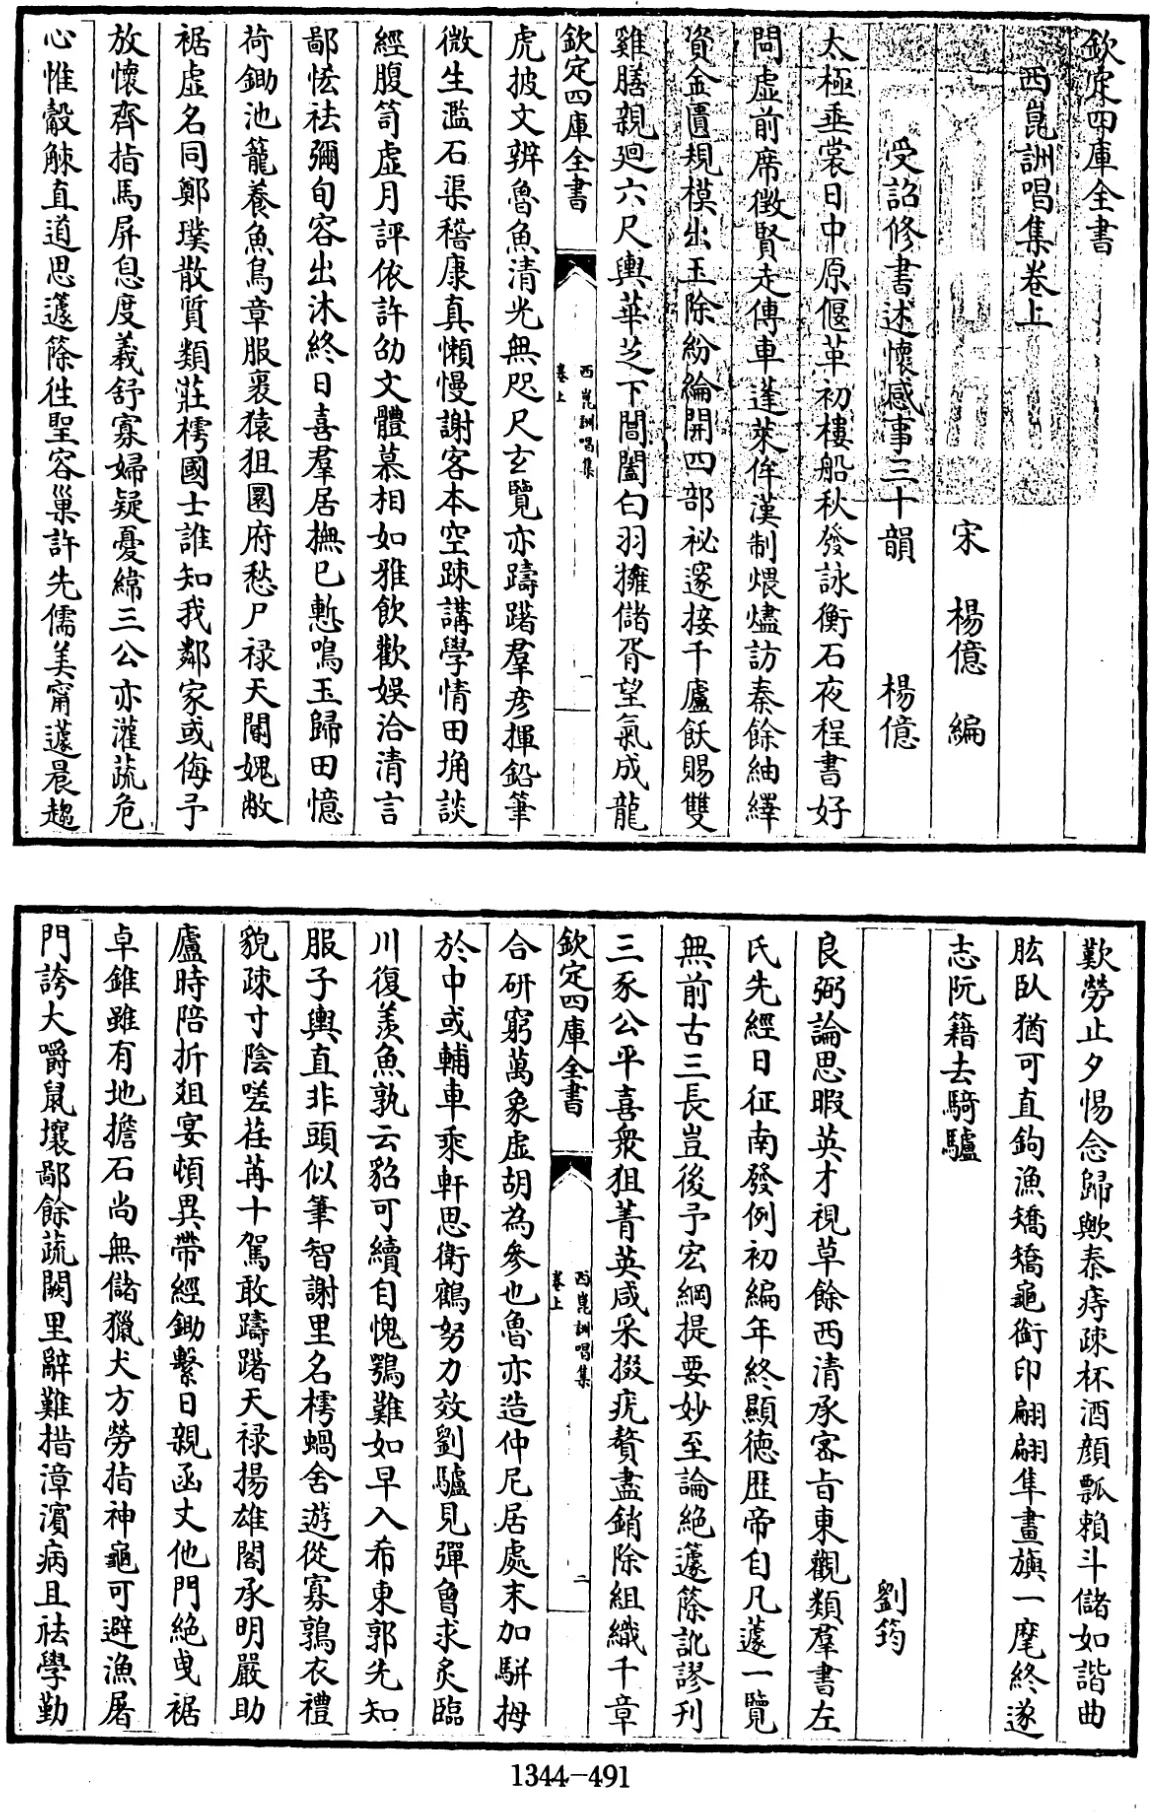 欽定四庫全書
西崑詶唱集卷上
宋 楊億 編
受詔修書述懷感事三十韻 楊億
太極垂裳日中原偃革初樓船秋發詠衡石夜程書好
問虛前席徵賢走傳車蓬萊侔漢制煨燼訪秦餘紬繹
資金匱規模出玉除紛綸開四部祕邃接千廬飫賜雙
雞膳親廻六尺輿華芝下閶闔白羽擁儲胥望氣成龍
欽定四庫全書
西崑詶唱集
卷上
一
虎披文辨魯魚清光無咫尺玄覽亦躊躇羣彦揮鉛筆
微生濫石渠嵇康真懶慢謝客本空疎講學情田埆談
經腹笥虛月評依許劭文體慕相如雅飲歡娛洽清言
鄙恡袪彌旬容出沐終日喜羣居撫已慙鳴玉歸田憶
荷鋤池籠養魚鳥章服裹猿狙圜府愁尸禄天閽媿敝
裾虛名同鄭璞散質類莊樗國士誰知我鄰家或侮予
放懷齊指馬屏息度義舒寡婦疑憂緯三公亦灌蔬危
心惟觳觫直道思蘧篨徃聖容巢許先儒美甯蘧晨趨
歎勞止夕惕念歸歟秦痔疎杯酒顔瓢賴斗儲如諧曲
肱臥猶可直鉤漁矯矯龜銜印翩翩隼畫旟一麾終遂
志阮籍去騎驢
劉筠
良弼論思暇英才視草餘西清承宻旨東觀類羣書左
氏先經日征南發例初編年終顯德歴帝自凡蘧一覽
無前古三長豈後予宏綱提要妙至論絶蘧篨訛謬刊
三豕公平喜衆狙菁英咸采掇疣贅盡銷除組織千章
欽定四庫全書
西崑詶唱集
卷上
二
合研窮萬象虛胡為參也魯亦造仲尼居處末加駢拇
於中或輔車乘軒思衛鶴努力效劉驢見彈㑹求炙臨
川復羨魚孰云貂可續自愧鶚難如早入希東郭先知
服子輿直非頭似筆智謝里名樗蝸舍遊從寡鶉衣禮
貌疎寸陰嗟荏苒十駕敢躊躇天禄揚雄閣承明嚴助
廬時陪折俎宴頓異帶經鋤繫日親函丈他門絶曳裾
卓錐雖有地擔石尚無儲獵犬方勞指神龜可避漁屠
門誇大嚼鼠壤鄙餘蔬闕里辭難措漳濱病且袪學勤
1344-491